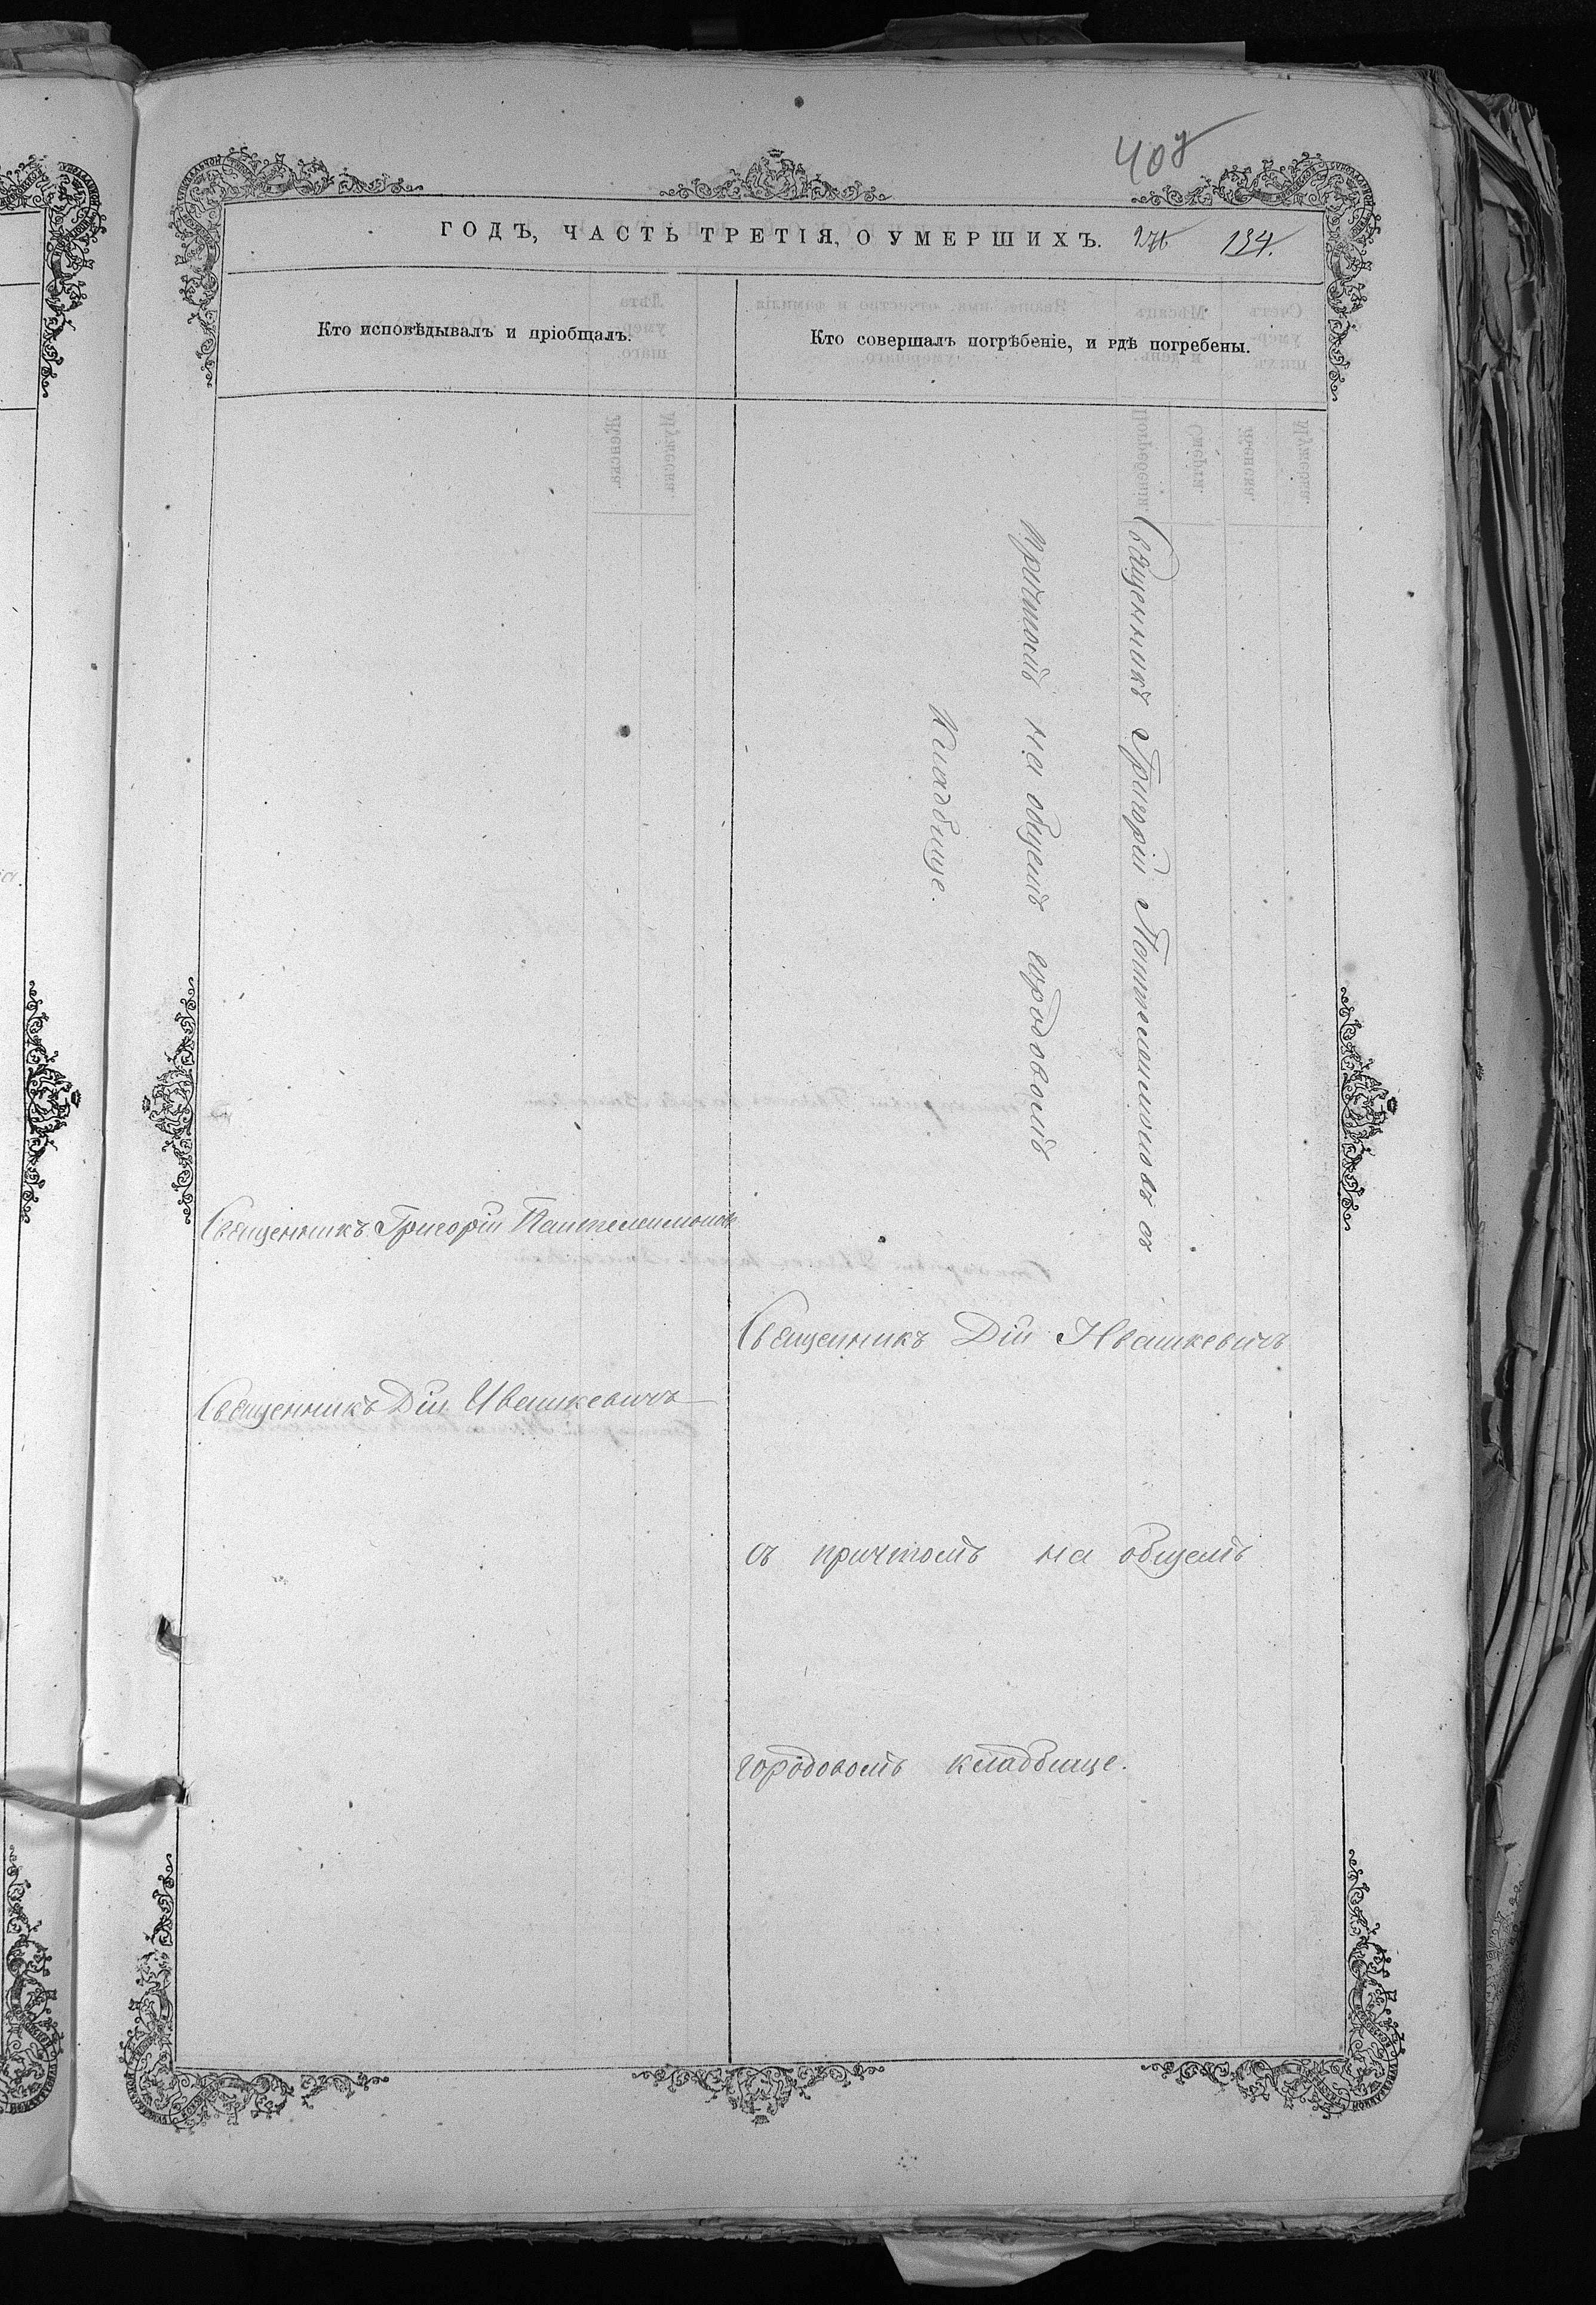 408
ГОДЪ, ЧАСТЬ ТРЕТІЯ, О УМЕРШИХЪ. 134.
Кто исповѣдывалъ и пріобщалъ.
Кто совершалъ погрѣбеніе, и гдѣ погребены.
Священникъ Григорій Пантелеимоновъ
Священникъ Дій Ивашкевичъ
Священникъ Григорій Пантелеимоновъ съ
причтомъ на общемъ городовомъ
кладбище.
Священникъ Дій Ивашкевичъ
съ причтомъ на общемъ
городовомъ кладбище.